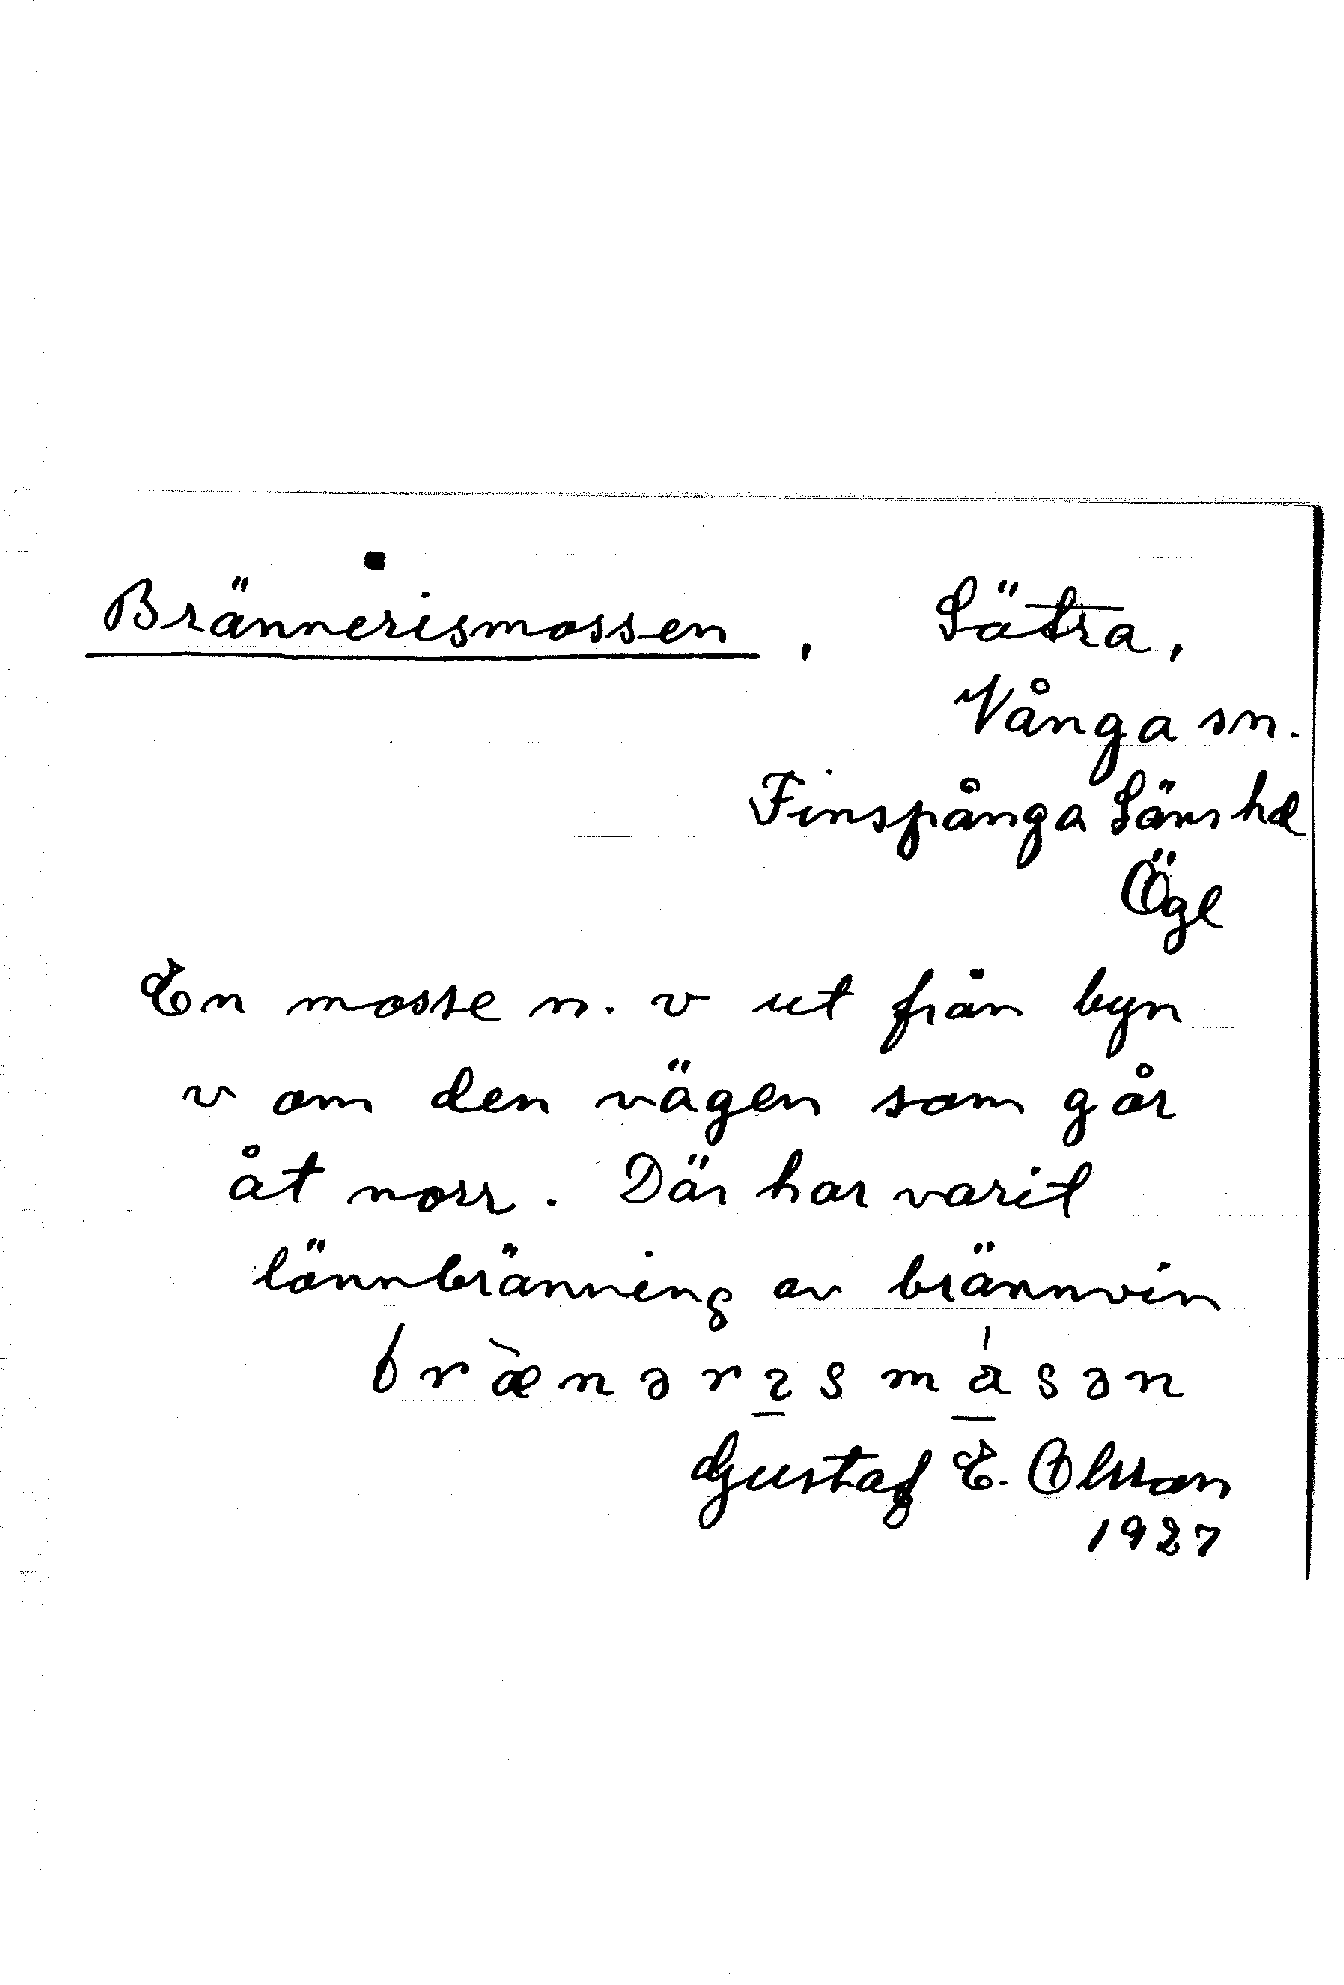 Brännerismossen, Sätra,
Vånga sn.
Finspånga Läns hd
Ögl
En mosse n. v ut från byn
v om den vägen som går
åt norr. Där har varit
lönnbränning av brännvin
bræ̀nərɪsmåsən
Gustaf E. Olsson
1927